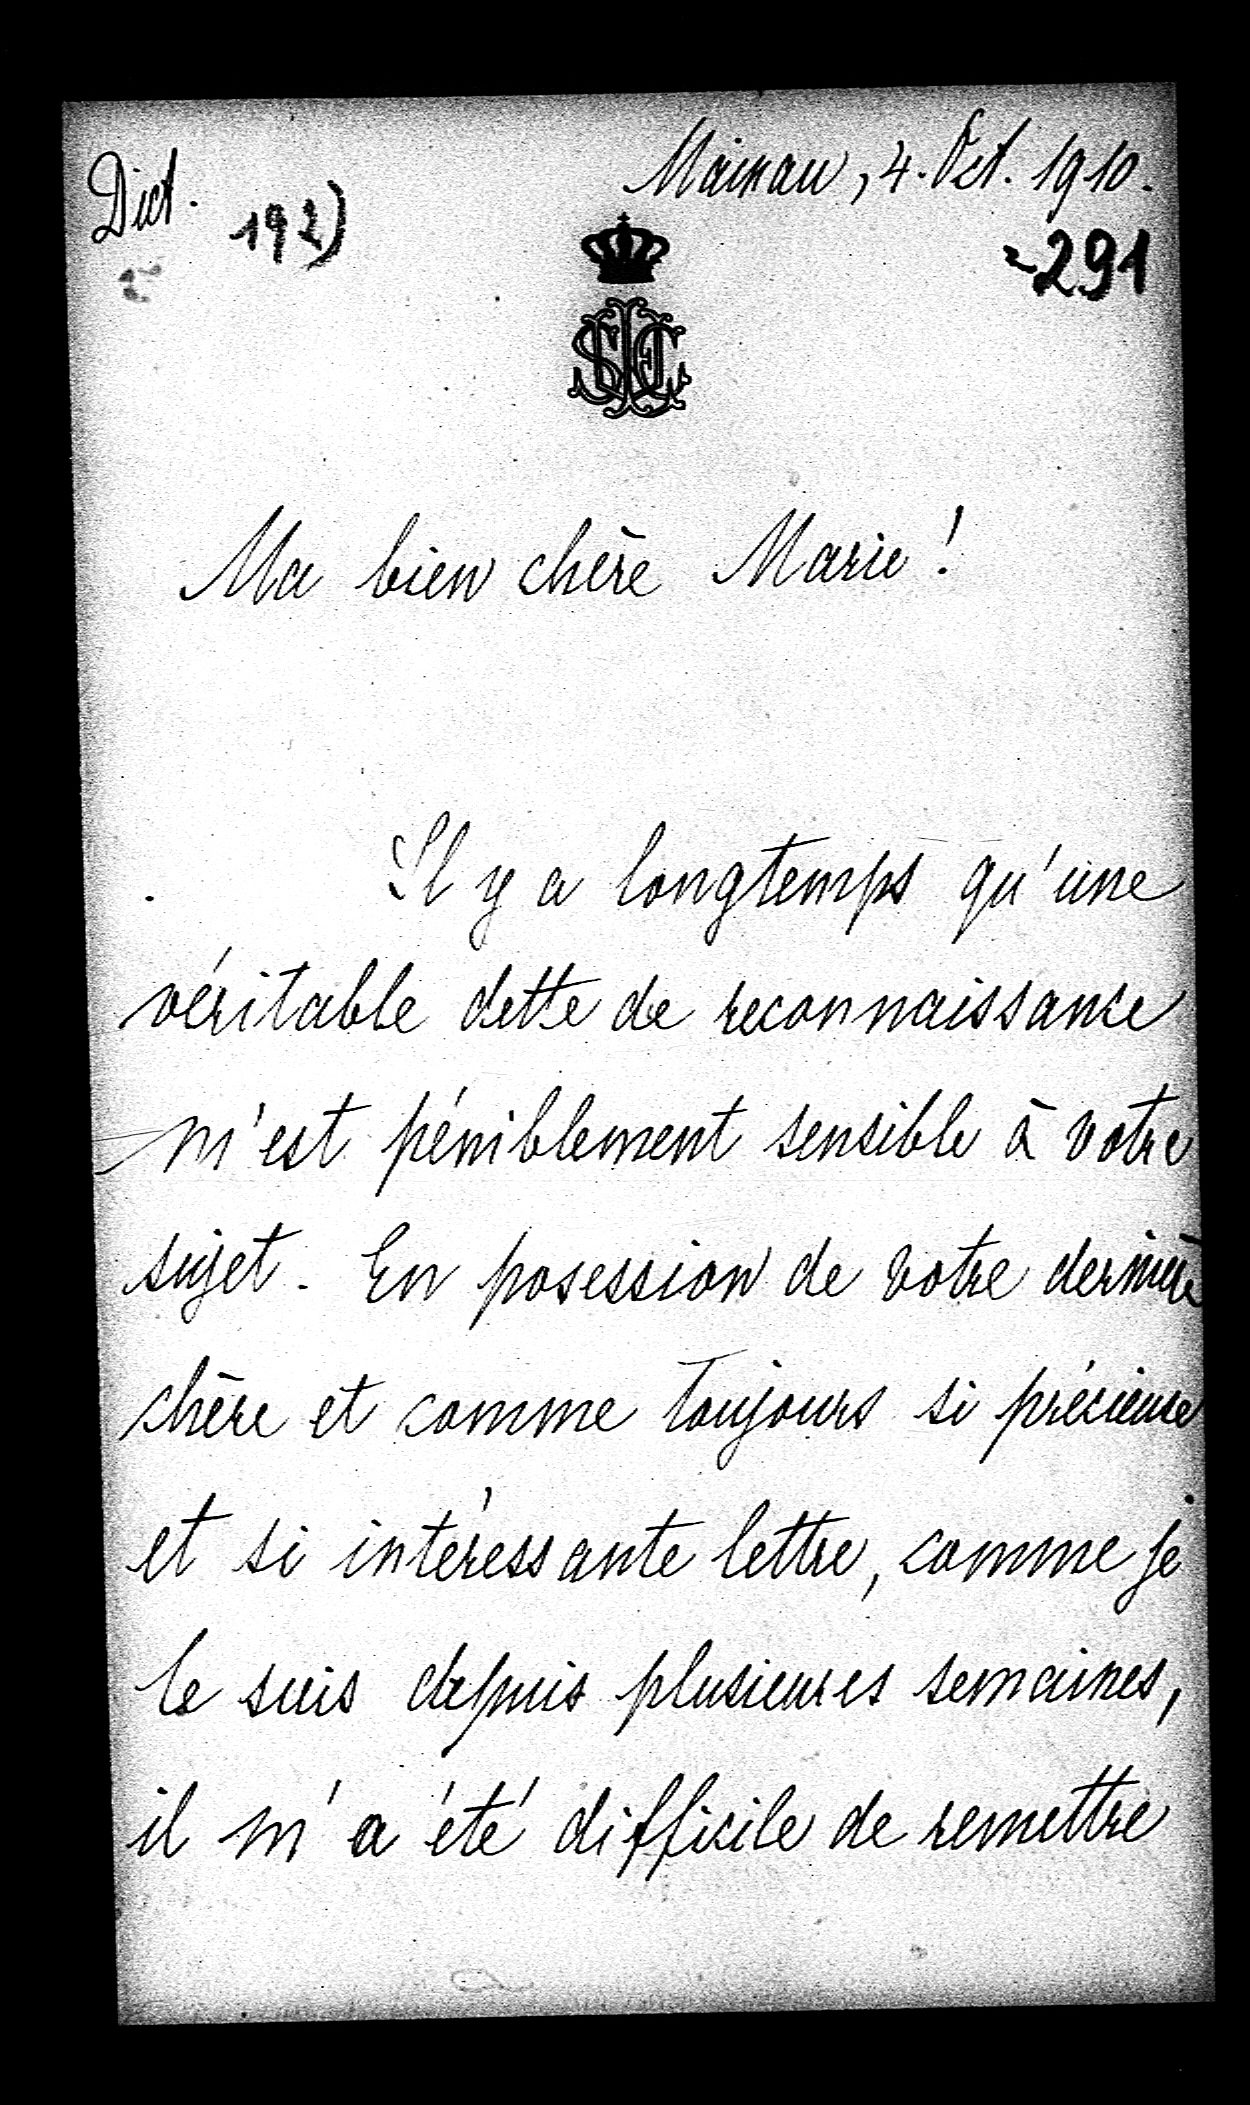 Dict. Mainau, 4. Oct. 1910.
192) 291
Ma bien chère Marie!
Il y a longtemps qu'une
véritable dette de reconnaissance
m'est péniblement sensible à votre
sujet. En posession de votre dernière
chère et comme toujours si précieuse
et si intéressante lettre, comme je
le suis depuis plusieures semaines,
il m'a été difficile de remettre